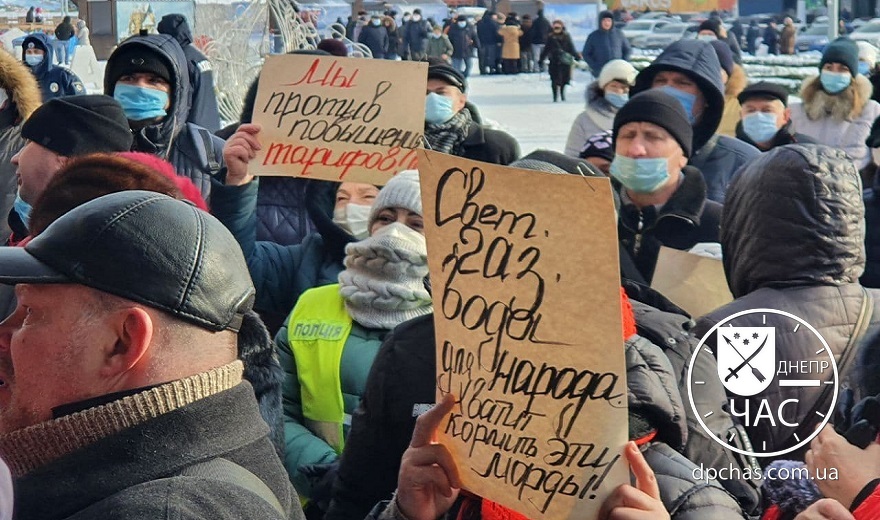 Мы
против
повышения
тарифов!!
Свет.
Газ.
Воды
для народа.
Хватит
кормить эти
морды!
ПОЛИЦИЯ
ДНЕПР
ЧАС
dpchas.com.ua